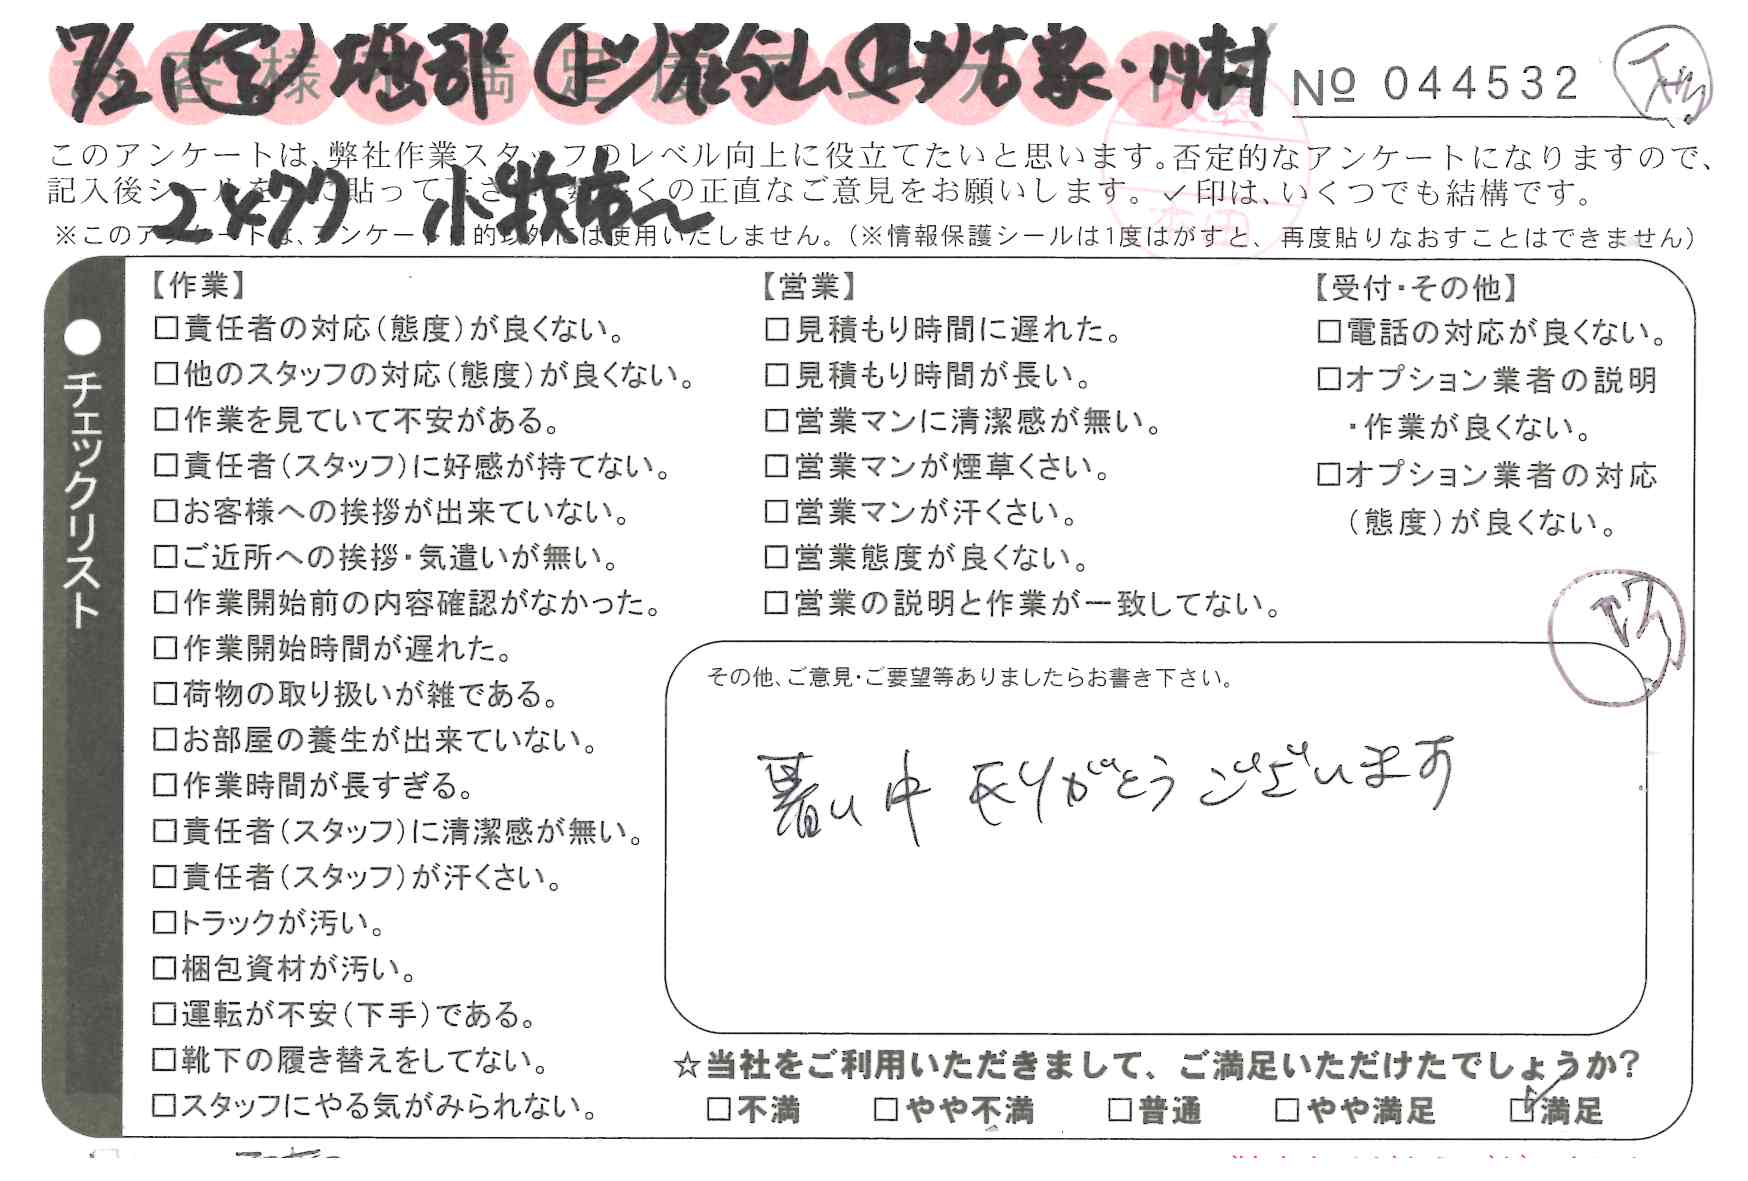 7/2 (室) 堀部
お客様満足度アンケート
No 044532
このアンケートは、弊社作業スタッフのレベル向上に役立てたいと思います。否定的なアンケートになりますので、
記入後シールを 貼って下さ くの正直なご意見をお願いします。✓印は、いくつでも結構です。
小牧市〜
※このアンケートは、アンケート目的以外には使用いたしません。(※情報保護シールは1度はがすと、再度貼りなおすことはできません)
●チェックリスト
【作業】
□責任者の対応(態度)が良くない。
□他のスタッフの対応(態度)が良くない。
□作業を見ていて不安がある。
□責任者(スタッフ)に好感が持てない。
□お客様への挨拶が出来ていない。
□ご近所への挨拶・気遣いが無い。
□作業開始前の内容確認がなかった。
□作業開始時間が遅れた。
□荷物の取り扱いが雑である。
□お部屋の養生が出来ていない。
□作業時間が長すぎる。
□責任者(スタッフ)に清潔感が無い。
□責任者(スタッフ)が汗くさい。
□トラックが汚い。
□梱包資材が汚い。
□運転が不安(下手)である。
□靴下の履き替えをしてない。
□スタッフにやる気がみられない。
【営業】
□見積もり時間に遅れた。
□見積もり時間が長い。
□営業マンに清潔感が無い。
□営業マンが煙草くさい。
□営業マンが汗くさい。
□営業態度が良くない。
□営業の説明と作業が一致してない。
【受付・その他】
□電話の対応が良くない。
□オプション業者の説明
・作業が良くない。
□オプション業者の対応
(態度)が良くない。
その他、ご意見・ご要望等ありましたらお書き下さい。
暑い中 ありがとうございます
☆当社をご利用いただきまして、ご満足いただけたでしょうか?
□不満 □やや不満 □普通 □やや満足 ☑満足